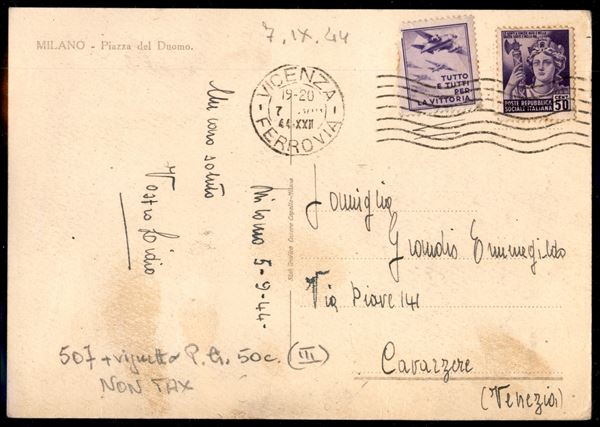 MILANO - Piazza del Duomo.
7.IX.44
VICENZA
19-20
7
44-XXII
FERROVIA
TUTTO
E TUTTI
PER
LA VITTORIA
POSTE REPUBBLICA
SOCIALE ITALIANA
CENT
50
Un caro saluto
Vostro Lidio
Milano 5-9-44-
Famiglia
Grandis Ermenegildo
Via Piave 141
Cavarzere
(Venezia)
507 + vignetta P.G. 50c. (III)
NON TAX